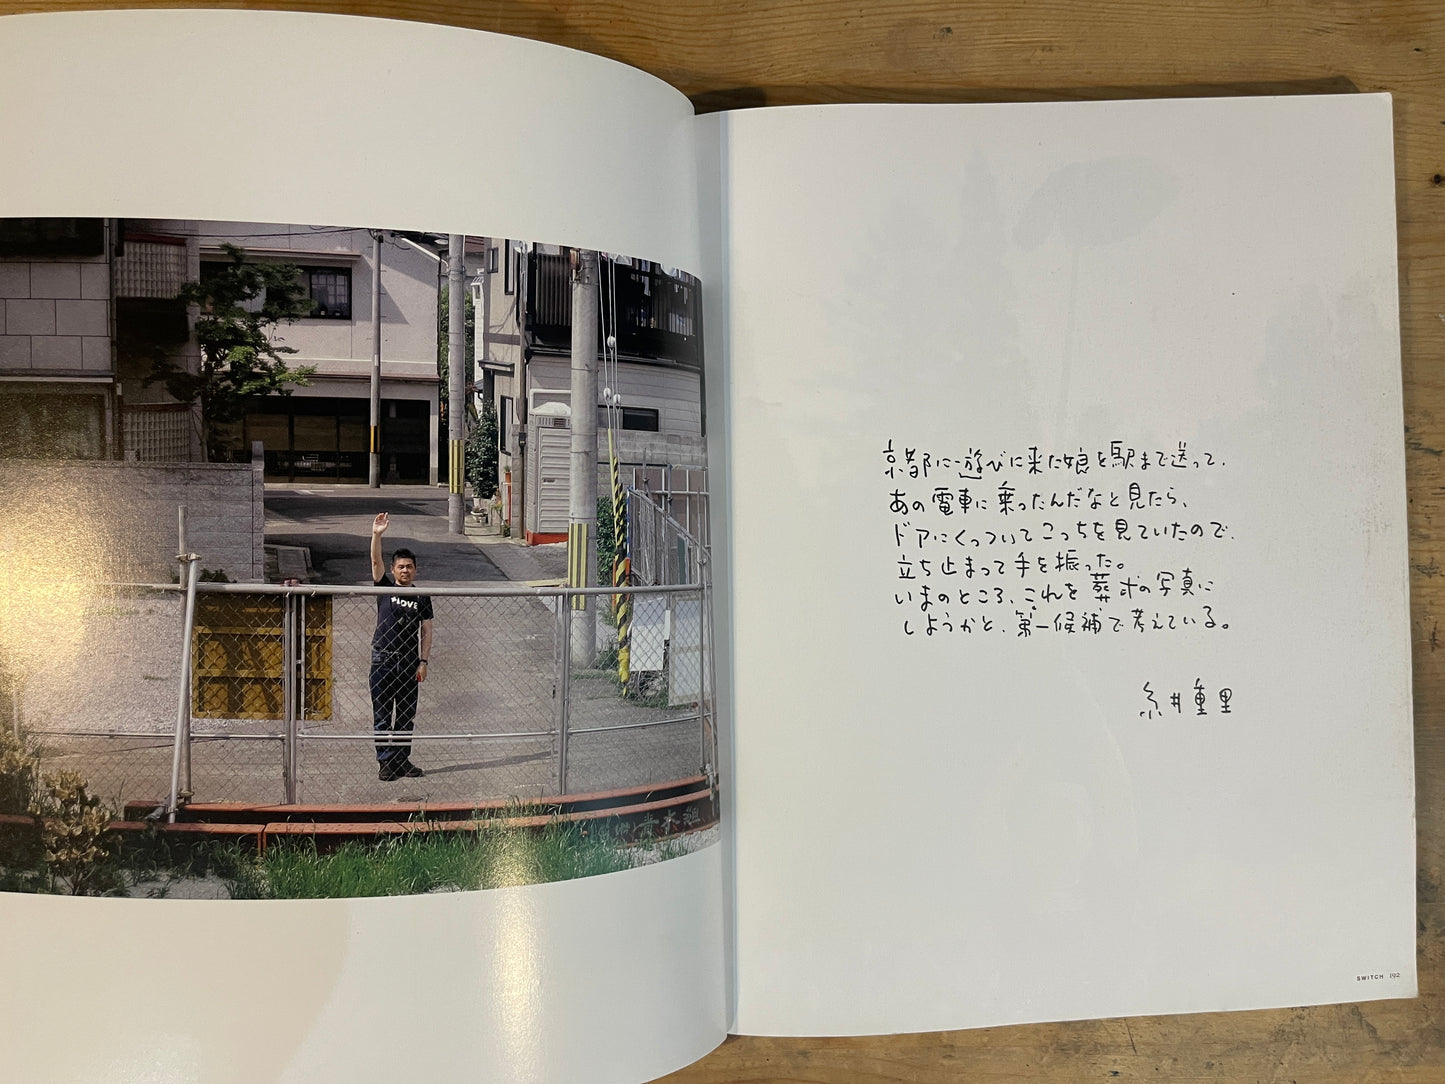 LOVE
京都に遊びに来た娘を駅まで送って、
あの電車に乗ったんだなと見たら、
ドアにくっついてこっちを見ていたので、
立ち止まって手を振った。
いまのところ、これを葬式の写真に
しようかと、第一候補で考えている。
糸井重里
SWITCH 192